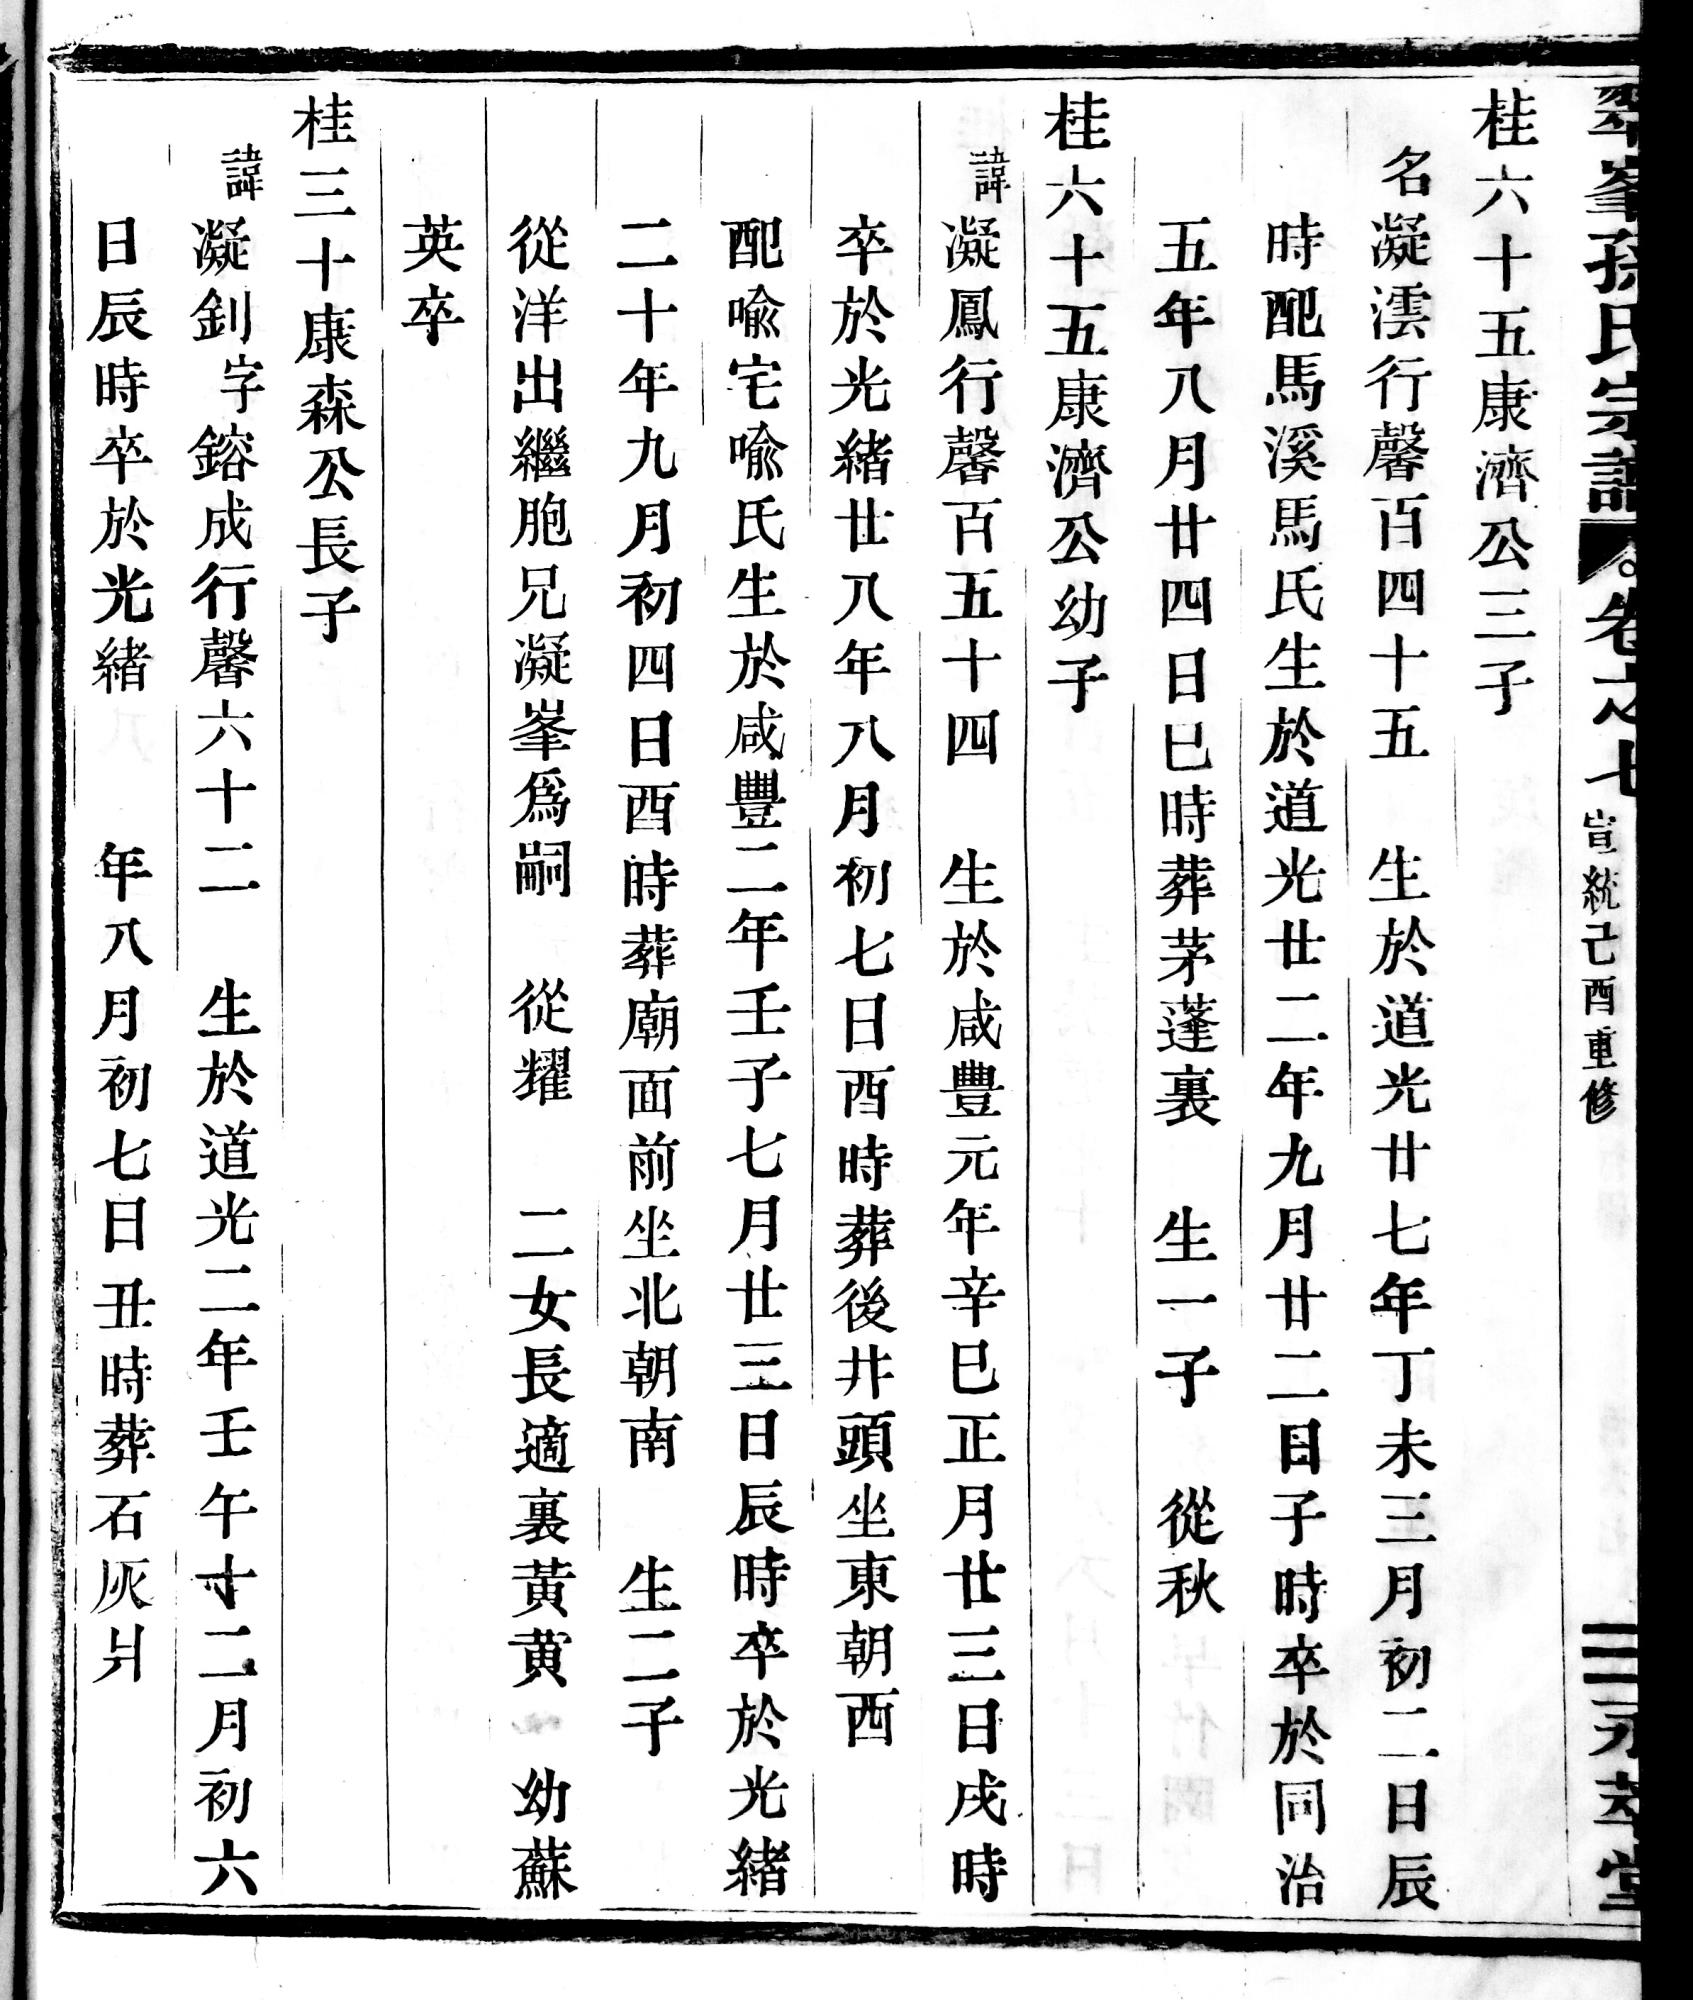 翠峯孫氏宗譜 卷之七 宣統己酉重修 二 永萃堂
桂六十五康濟公三子
名凝澐行馨百四十五 生於道光廿七年丁未三月初二日辰
時配馬溪馬氏生於道光廿二年九月廿二日子時卒於同治
五年八月廿四日巳時葬茅蓬裏 生一子 從秋
桂六十五康濟公幼子
諱凝鳳行馨百五十四 生於咸豐元年辛巳正月廿三日戌時
卒於光緒廿八年八月初七日酉時葬後井頭坐東朝西
配喩宅喩氏生於咸豐二年壬子七月廿三日辰時卒於光緒
二十年九月初四日酉時葬廟面前坐北朝南 生二子
從洋出繼胞兄凝峯爲嗣 從耀 二女長適裏黃黃 幼蘇
英卒
桂三十康森公長子
諱凝釗字鎔成行馨六十二 生於道光二年壬午十二月初六
日辰時卒於光緒 年八月初七日丑時葬石灰爿